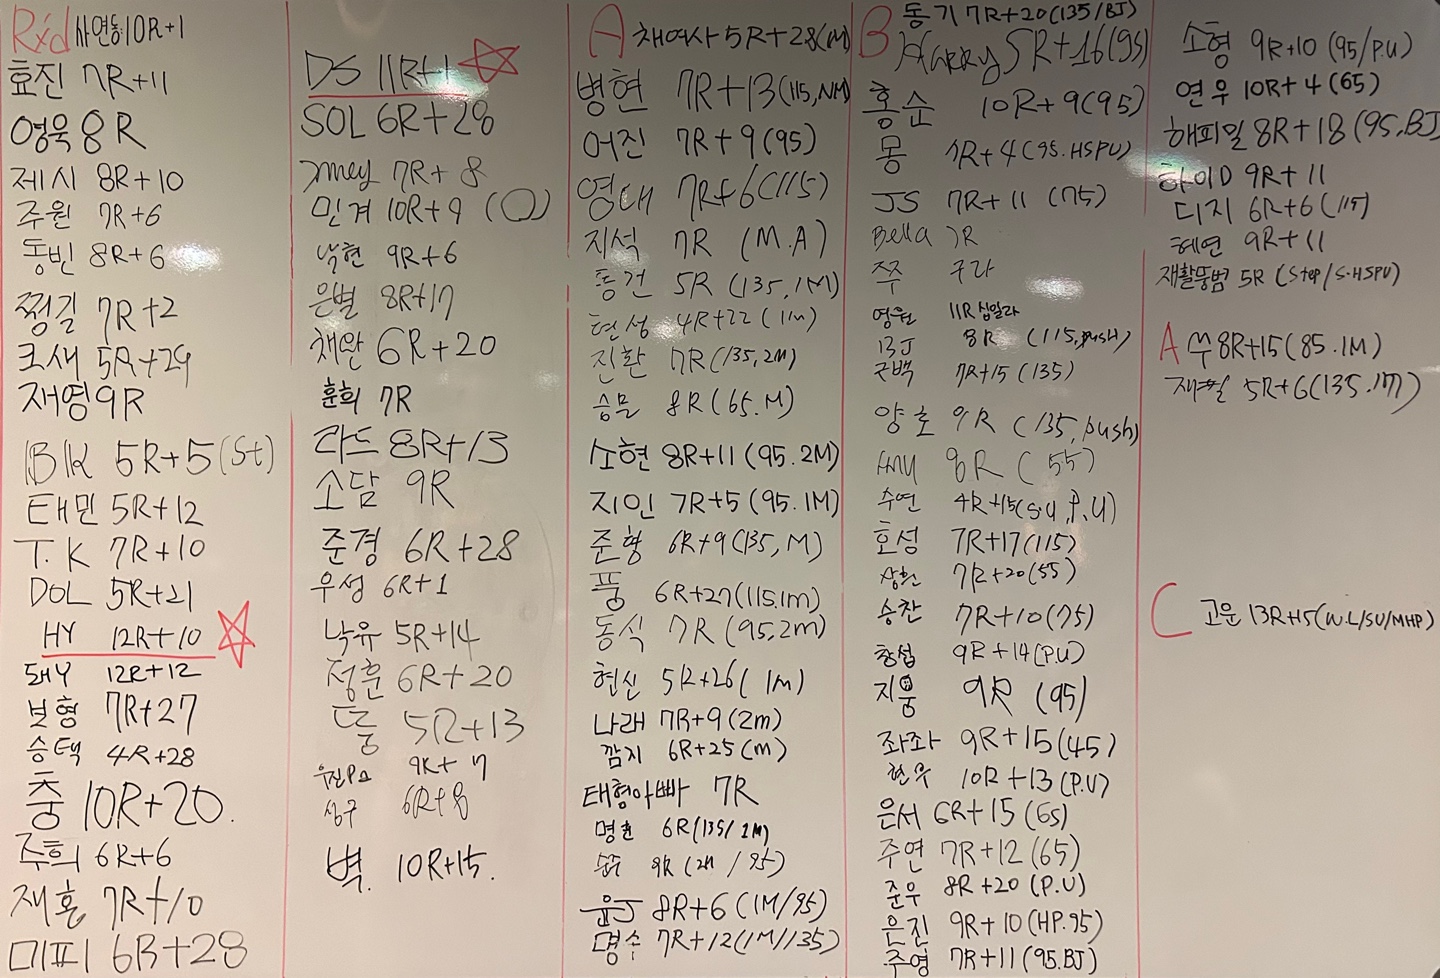 Rxd 사연둥 10R+1
효진 7R+11
영욱 8R
제시 8R+10
주원 7R+6
동빈 8R+6
찡길 7R+2
크새 5R+29
저영 9R
BK 5R+5(St)
태민 5R+12
T.K 7R+10
DOL 5R+21
HY 12R+10
돼Y 12R+12
보형 7R+27
승택 4R+28
충 10R+20.
주희 6R+6
재훈 7R+10
미피 6R+28
DS 11R+1
SOL 6R+28
7R+8
민겨 10R+9
낙현 9R+6
은별 8R+17
채완 6R+20
훈희 7R
라드 8R+13
소담 9R
준경 6R+28
우성 6R+1
낙유 5R+14
정훈 6R+20
뚱 5R+13
9R+7
상구 6R+8
벽. 10R+15.
A 채여사 5R+28(M)
병현 7R+13(115,NM)
어진 7R+9(95)
영대 7R+6(115)
지석 7R (M.A)
동건 5R (135,1M)
현성 4R+22(1m)
진환 7R(135,2M)
승물 8R(65.M)
소현 8R+11(95.2M)
지인 7R+5(95.1M)
준형 6R+9(135,M)
풍 6R+27(115,1m)
동식 7R(95,2m)
현신 5R+26(1m)
나래 7R+9(2m)
깜지 6R+25(m)
태형아빠 7R
명훈 6R(135/1M)
9R
윤J 8R+6(1M/95)
명수 7R+12(1M/135)
B 동기 7R+20(135/BJ)
Harry 5R+16(95)
홍순 10R+9(95)
몽 R+4(95.HSPU)
JS 7R+11(75)
Bella 7R
쭈 구라
영원 11R 십일라
BJ 8R (115,push)
구백 7R+15(135)
양호 9R (135,push)
8R (55)
수연 4R+15(su,P.U)
호성 7R+17(115)
상현 7R+20(55)
승찬 7R+10(75)
창섭 9R+14(P.U)
지웅 9R (95)
좌좌 9R+15(45)
현우 10R+13(P.U)
은서 6R+15(65)
주연 7R+12(65)
준우 8R+20(P.U)
은진 9R+10(HP.95)
주영 7R+11(95.BJ)
소형 9R+10(95/P.U)
연우 10R+4(65)
해피밀 8R+18(95,BJ
하이D 9R+11
디지 6R+6(115)
혜연 9R+11
재활뚱범 5R (Step/S.HSPU)
A 쑤 8R+15(85.1M)
재필 5R+6(135.1m)
C 고운 13R+15(W.L/SU/MHP)